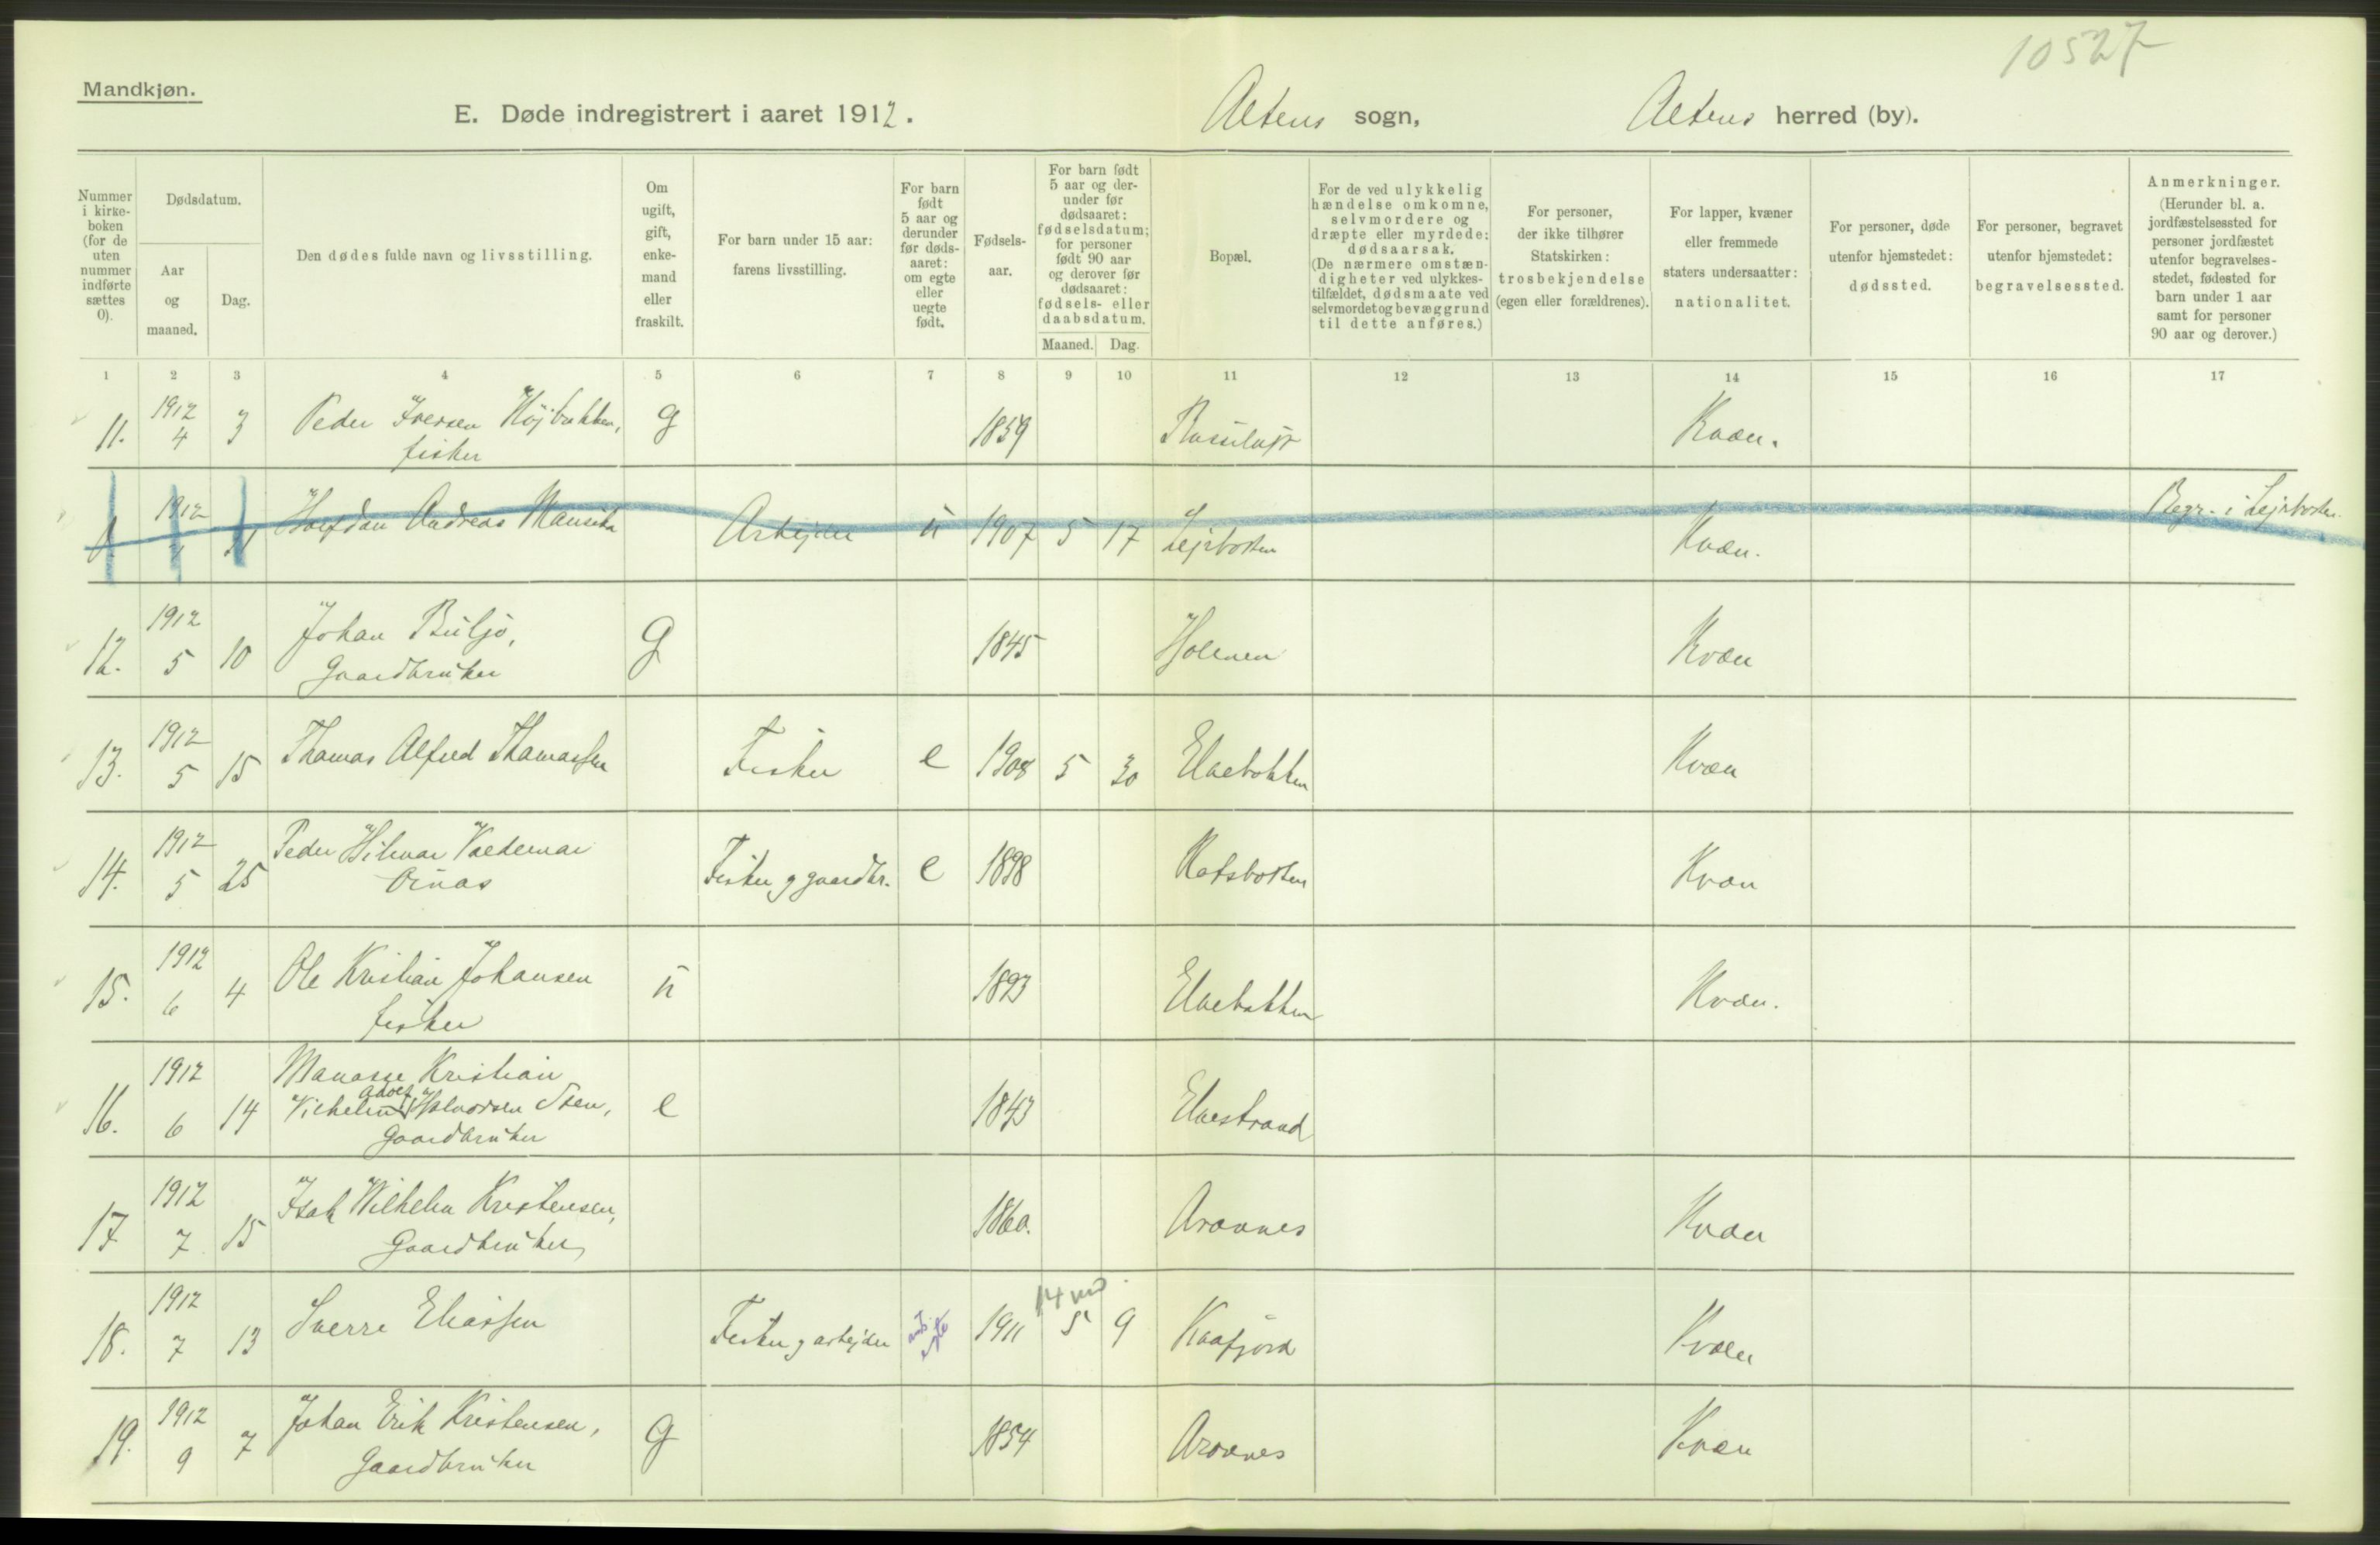 10527
Mandkjøn.
E. Døde indregistrert i aaret 1912. Altens sogn, Altens herred (by).
Nummer i kirke-boken (for de uten nummer indførte sættes 0).
Dødsdatum.
Aar og maaned.
Dag.
Den dødes fulde navn og livsstilling.
Om ugift, gift, enke-mand eller fraskilt.
For barn under 15 aar: farens livsstilling.
For barn født 5 aar og derunder før døds-aaret: om egte eller uegte født.
Fødsels-aar.
For barn født 5 aar og der-under før dødsaaret: fødselsdatum; for personer født 90 aar og derover før dødsaaret: fødsels- eller daabsdatum.
Maaned. Dag.
Bopæl.
For de ved ulykkelig hændelse omkomne, selvmordere og dræpte eller myrdede: dødsaarsak. (De nærmere omstæn-digheter ved ulykkes-tilfældet, dødsmaate ved selvmordet og bevæggrund til dette anføres.)
For personer, der ikke tilhører Statskirken: trosbekjendelse (egen eller forældrenes).
For lapper, kvæner eller fremmede staters undersaatter: nationalitet.
For personer, døde utenfor hjemstedet: dødssted.
For personer, begravet utenfor hjemstedet: begravelsessted.
Anmerkninger. (Herunder bl. a. jordfæstelsessted for personer jordfæstet utenfor begravelses-stedet, fødested for barn under 1 aar samt for personer 90 aar og derover.)
1 2 3 4 5 6 7 8 9 10 11 12 13 14 15 16 17
11. 1912 4 3 Peder Iversen Højbakken, g 1859 Kvæn.
fisker
1912 Halfdan Andreas Arbejder u 1907 5 17 Lejrbotten Kvæn. Begr. i Lejrbotten.
12. 1912 5 10 Johan Buljo, g 1845 Holmen Kvæn
Gaardbruker
13. 1912 5 15 Thomas Alfred Thomassen Fisker e 1908 5 30 Elvebakken Kvæn
14. 1912 5 25 Peder Hilmar Valdemar Fisker g gaardbr. e 1898 Kvæn
Oinas
15. 1912 6 4 Ole Kristian Johansen u 1893 Elvebakken Kvæn.
fisker
16. 1912 6 14 Manasse Kristian e 1843 Elvestrand
Vilhelm Adolf Halvorsen
Gaardbruker
17 1912 7 15 Isak Wilhelm Kristensen, 1860. Aronnes Kvæn
Gaardbruker
18. 1912 7 13 Sverre Eliassen Fisker g arbejder 1911 14 md 5 9 Kaafjord Kvæn
19. 1912 9 7 Johan Erik Kristensen, g 1854 Aronnes Kvæn
Gaardbruker